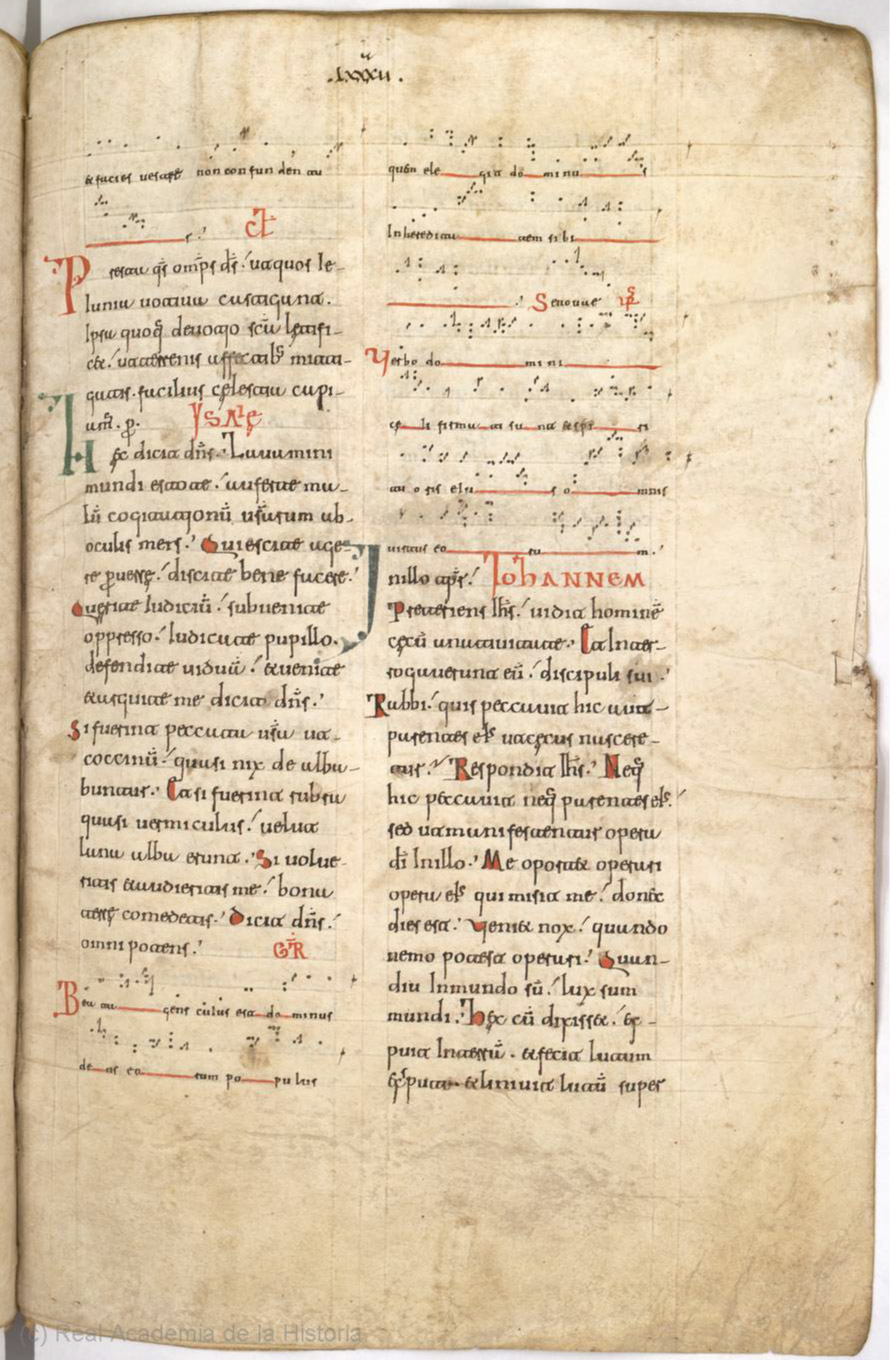 .lxxxii.
& facies uestrę non confun den tu
r. CŁ
Presta q̄s om̄ps d̄s. ut quos ie
iunia uotiua castigant.
Ipsa quoq; deuotio sc̄a lętifi
c&. ut terrenis affectib; miti
gatis. facilius cęlestia cupi
ant. p.
YSAIĘ
Hęc dicit dn̄s. Lauamini
mundi estote. auferte ma
lū cogitationū us̄arum ab
oculis meis. Quiescite age
re peruersę. discite bene facere.
Querite iudiciū. subuenite
oppresso. Iudicate pupillo.
defendite uiduā. & uenite
& arguite me dicit dn̄s.
Si fuerint peccata us̄a ut
coccinū. quasi nix de alba
buntur. Et si fuerint rubra
quasi uermiculus. uelut
lana alba erunt. Si uolue
ritis & audieritis me. bona
terrę comedetis. Dicit dn̄s.
omnipotens. GR̄
Bea ta gens cuius est do minus
de us eo rum po pulus
quem ele git do mi nu s
In heredita tem si bi
Seuouae
Verbo do mi ni
cę li firma ti su nt & spi ri
tu o ris eiu s o mnis
uirtus eo ru m.
In illo tp̄r. IOHANNEM
Preteriens ih̄s. uidit hominē
cęcū a natiuitate. Et inter
rogauerunt eū. discipuli sui.
Rabbi. quis peccauit hic aut
parentes ei; ut cęcus nascere
tur. Respondit ih̄s. Neq;
hic peccauit neq; parentes ei;.
sed ut manifestentur opera
dī in illo. Me oport& operari
opera ei; qui misit me. donec
dies est. Veni& nox. quando
nemo potest operari. Quan
diu in mundo sū. lux sum
mundi. Hęc cū dixiss&. ex
puit in terrā. & fecit lutum
ex sputo & liniuit lutū super
(c) Real Academia de la Historia